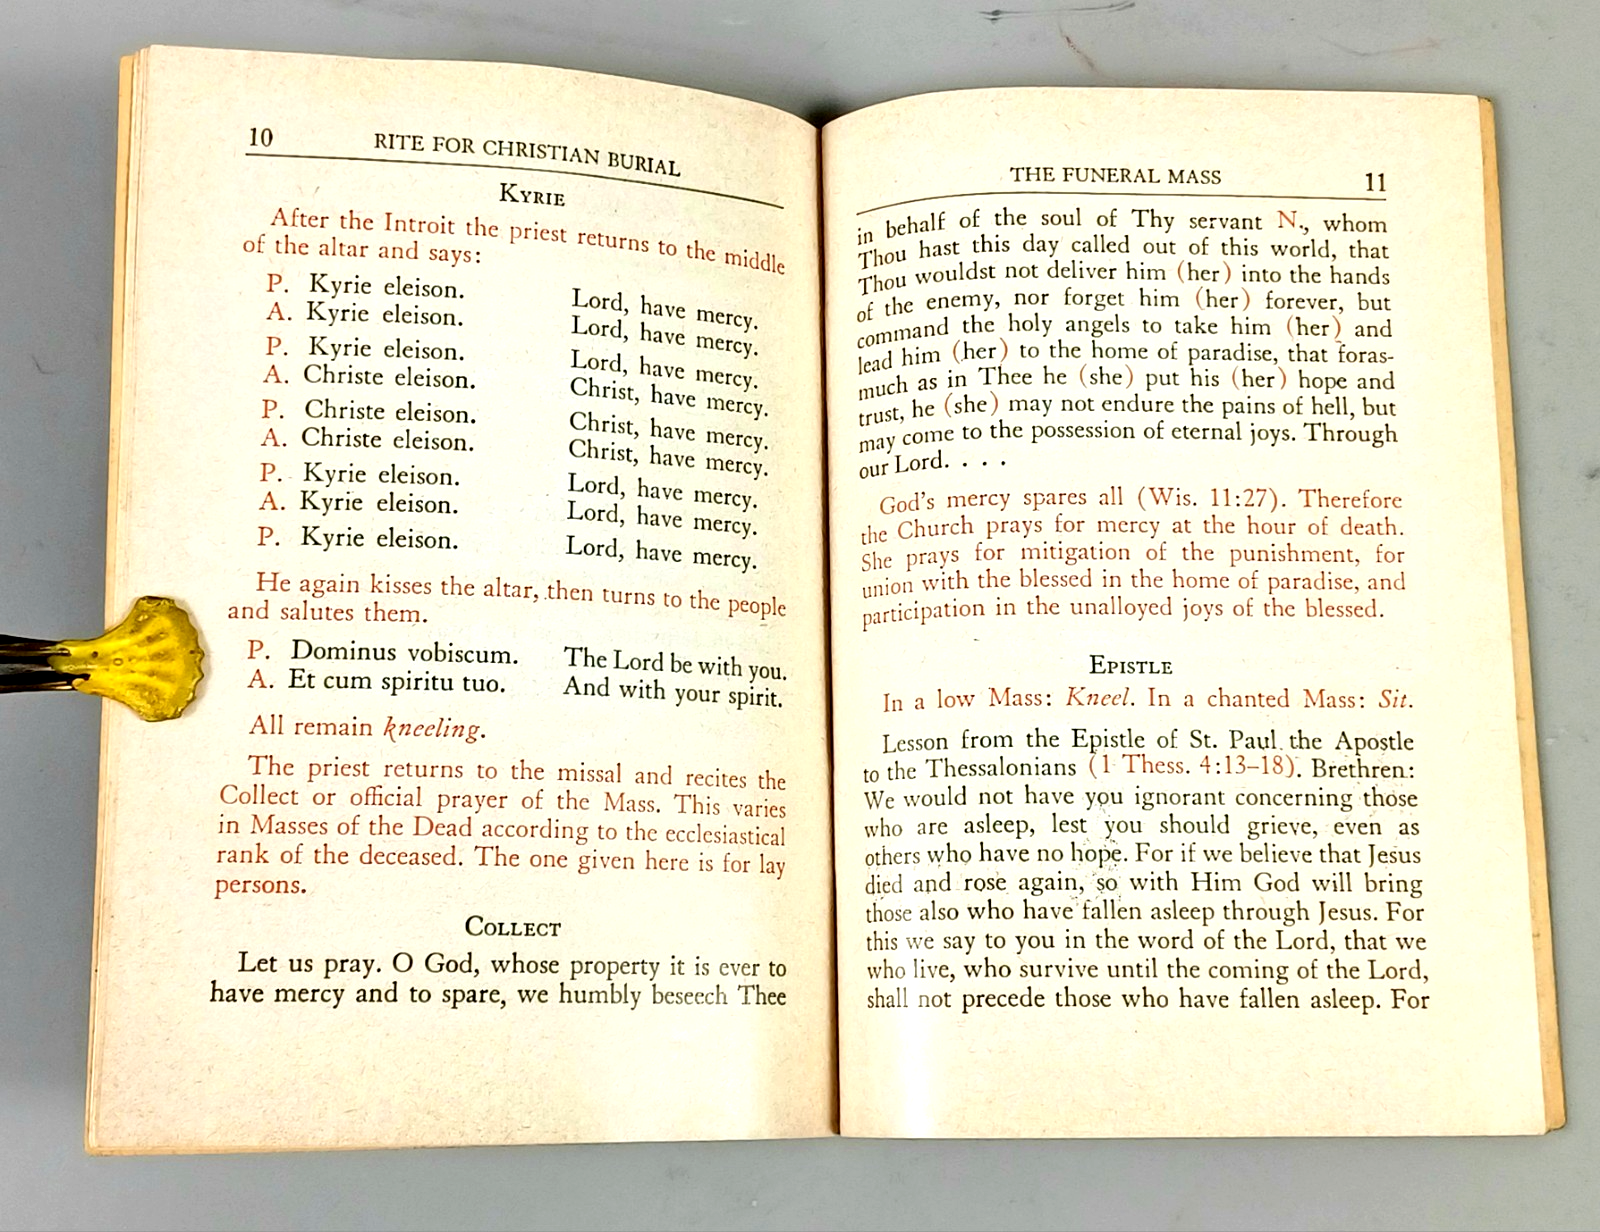 10 RITE FOR CHRISTIAN BURIAL
KYRIE
After the Introit the priest returns to the middle
of the altar and says:
P. Kyrie eleison. Lord, have mercy.
A. Kyrie eleison. Lord, have mercy.
P. Kyrie eleison. Lord, have mercy.
A. Christe eleison. Christ, have mercy.
P. Christe eleison. Christ, have mercy.
A. Christe eleison. Christ, have mercy.
P. Kyrie eleison. Lord, have mercy.
A. Kyrie eleison. Lord, have mercy.
P. Kyrie eleison. Lord, have mercy.
He again kisses the altar, then turns to the people
and salutes them.
P. Dominus vobiscum. The Lord be with you.
A. Et cum spiritu tuo. And with your spirit.
All remain kneeling.
The priest returns to the missal and recites the
Collect or official prayer of the Mass. This varies
in Masses of the Dead according to the ecclesiastical
rank of the deceased. The one given here is for lay
persons.
COLLECT
Let us pray. O God, whose property it is ever to
have mercy and to spare, we humbly beseech Thee
THE FUNERAL MASS 11
in behalf of the soul of Thy servant N., whom
Thou hast this day called out of this world, that
Thou wouldst not deliver him (her) into the hands
of the enemy, nor forget him (her) forever, but
command the holy angels to take him (her) and
lead him (her) to the home of paradise, that foras-
much as in Thee he (she) put his (her) hope and
trust, he (she) may not endure the pains of hell, but
may come to the possession of eternal joys. Through
our Lord. . . .
God's mercy spares all (Wis. 11:27). Therefore
the Church prays for mercy at the hour of death.
She prays for mitigation of the punishment, for
union with the blessed in the home of paradise, and
participation in the unalloyed joys of the blessed.
EPISTLE
In a low Mass: Kneel. In a chanted Mass: Sit.
Lesson from the Epistle of St. Paul the Apostle
to the Thessalonians (1 Thess. 4:13–18). Brethren:
We would not have you ignorant concerning those
who are asleep, lest you should grieve, even as
others who have no hope. For if we believe that Jesus
died and rose again, so with Him God will bring
those also who have fallen asleep through Jesus. For
this we say to you in the word of the Lord, that we
who live, who survive until the coming of the Lord,
shall not precede those who have fallen asleep. For